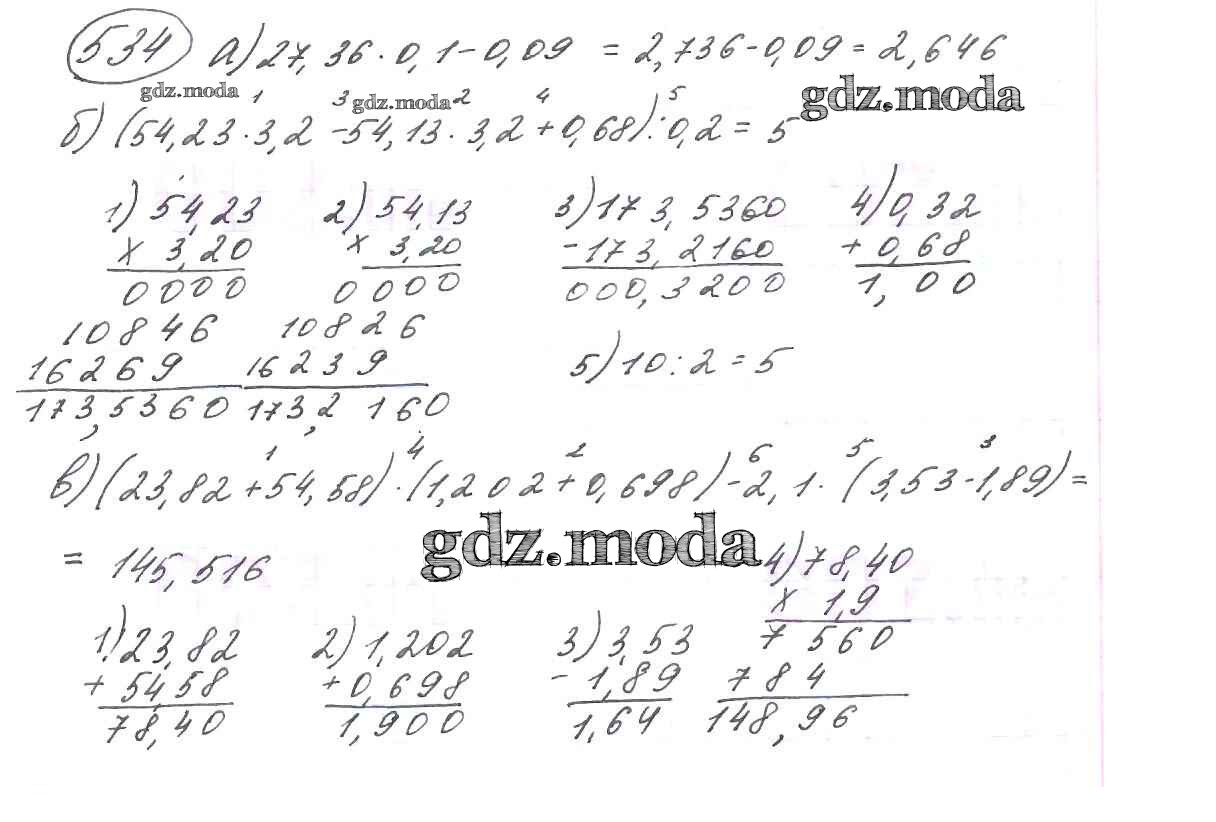 534 а) 27,36 · 0,1 - 0,09 = 2,736 - 0,09 = 2,646
gdz.moda 1 3 gdz.moda 2 4 5 gdz.moda
б) (54,23 · 3,2 - 54,13 · 3,2 + 0,68) : 0,2 = 5
1) 54,23 2) 54,13 3) 173,5360 4) 0,32
× 3,20 × 3,20 - 173,2160 + 0,68
0000 0000 000,3200 1,00
10846 10826
16269 16239 5) 10 : 2 = 5
173,5360 173,2160
1 4 2 6 5 3
в) (23,82 + 54,58) · (1,202 + 0,698) - 2,1 · (3,53 - 1,89) =
gdz.moda
= 145,516 4) 78,40
× 1,9
1) 23,82 2) 1,202 3) 3,53 7560
+ 54,58 + 0,698 - 1,89 784
78,40 1,900 1,64 148,96